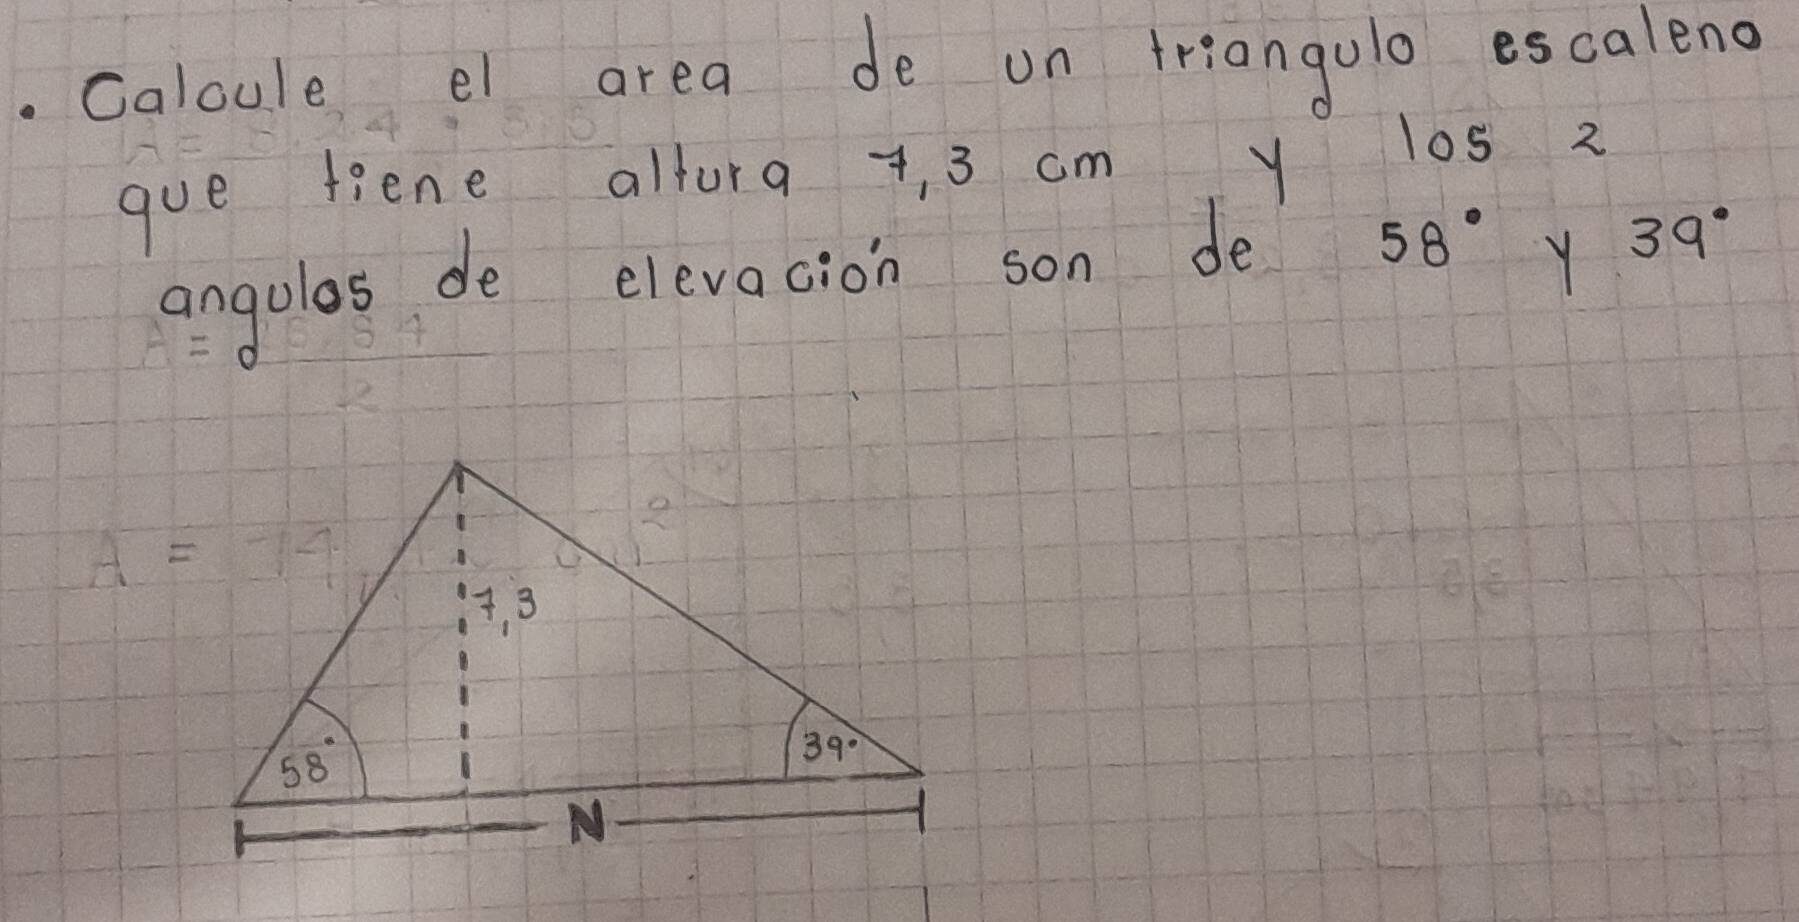 . Calcule el area de un triangulo escaleno
que tiene altura 7,3 cm y los 2
angulos de elevación son de 58° y 39°
7,3
58° 39°
N